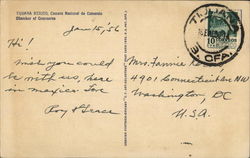 TIJUANA MEXICO, Camara Nacional de Comercio
Chamber of Commerce
Jan 15, '56
Hi!
Wish you could
be with us, here
in mexico Love
Roy & Grace
Mrs. Fannie
4901 Connecticut NW
Washington, DC
U.S.A.